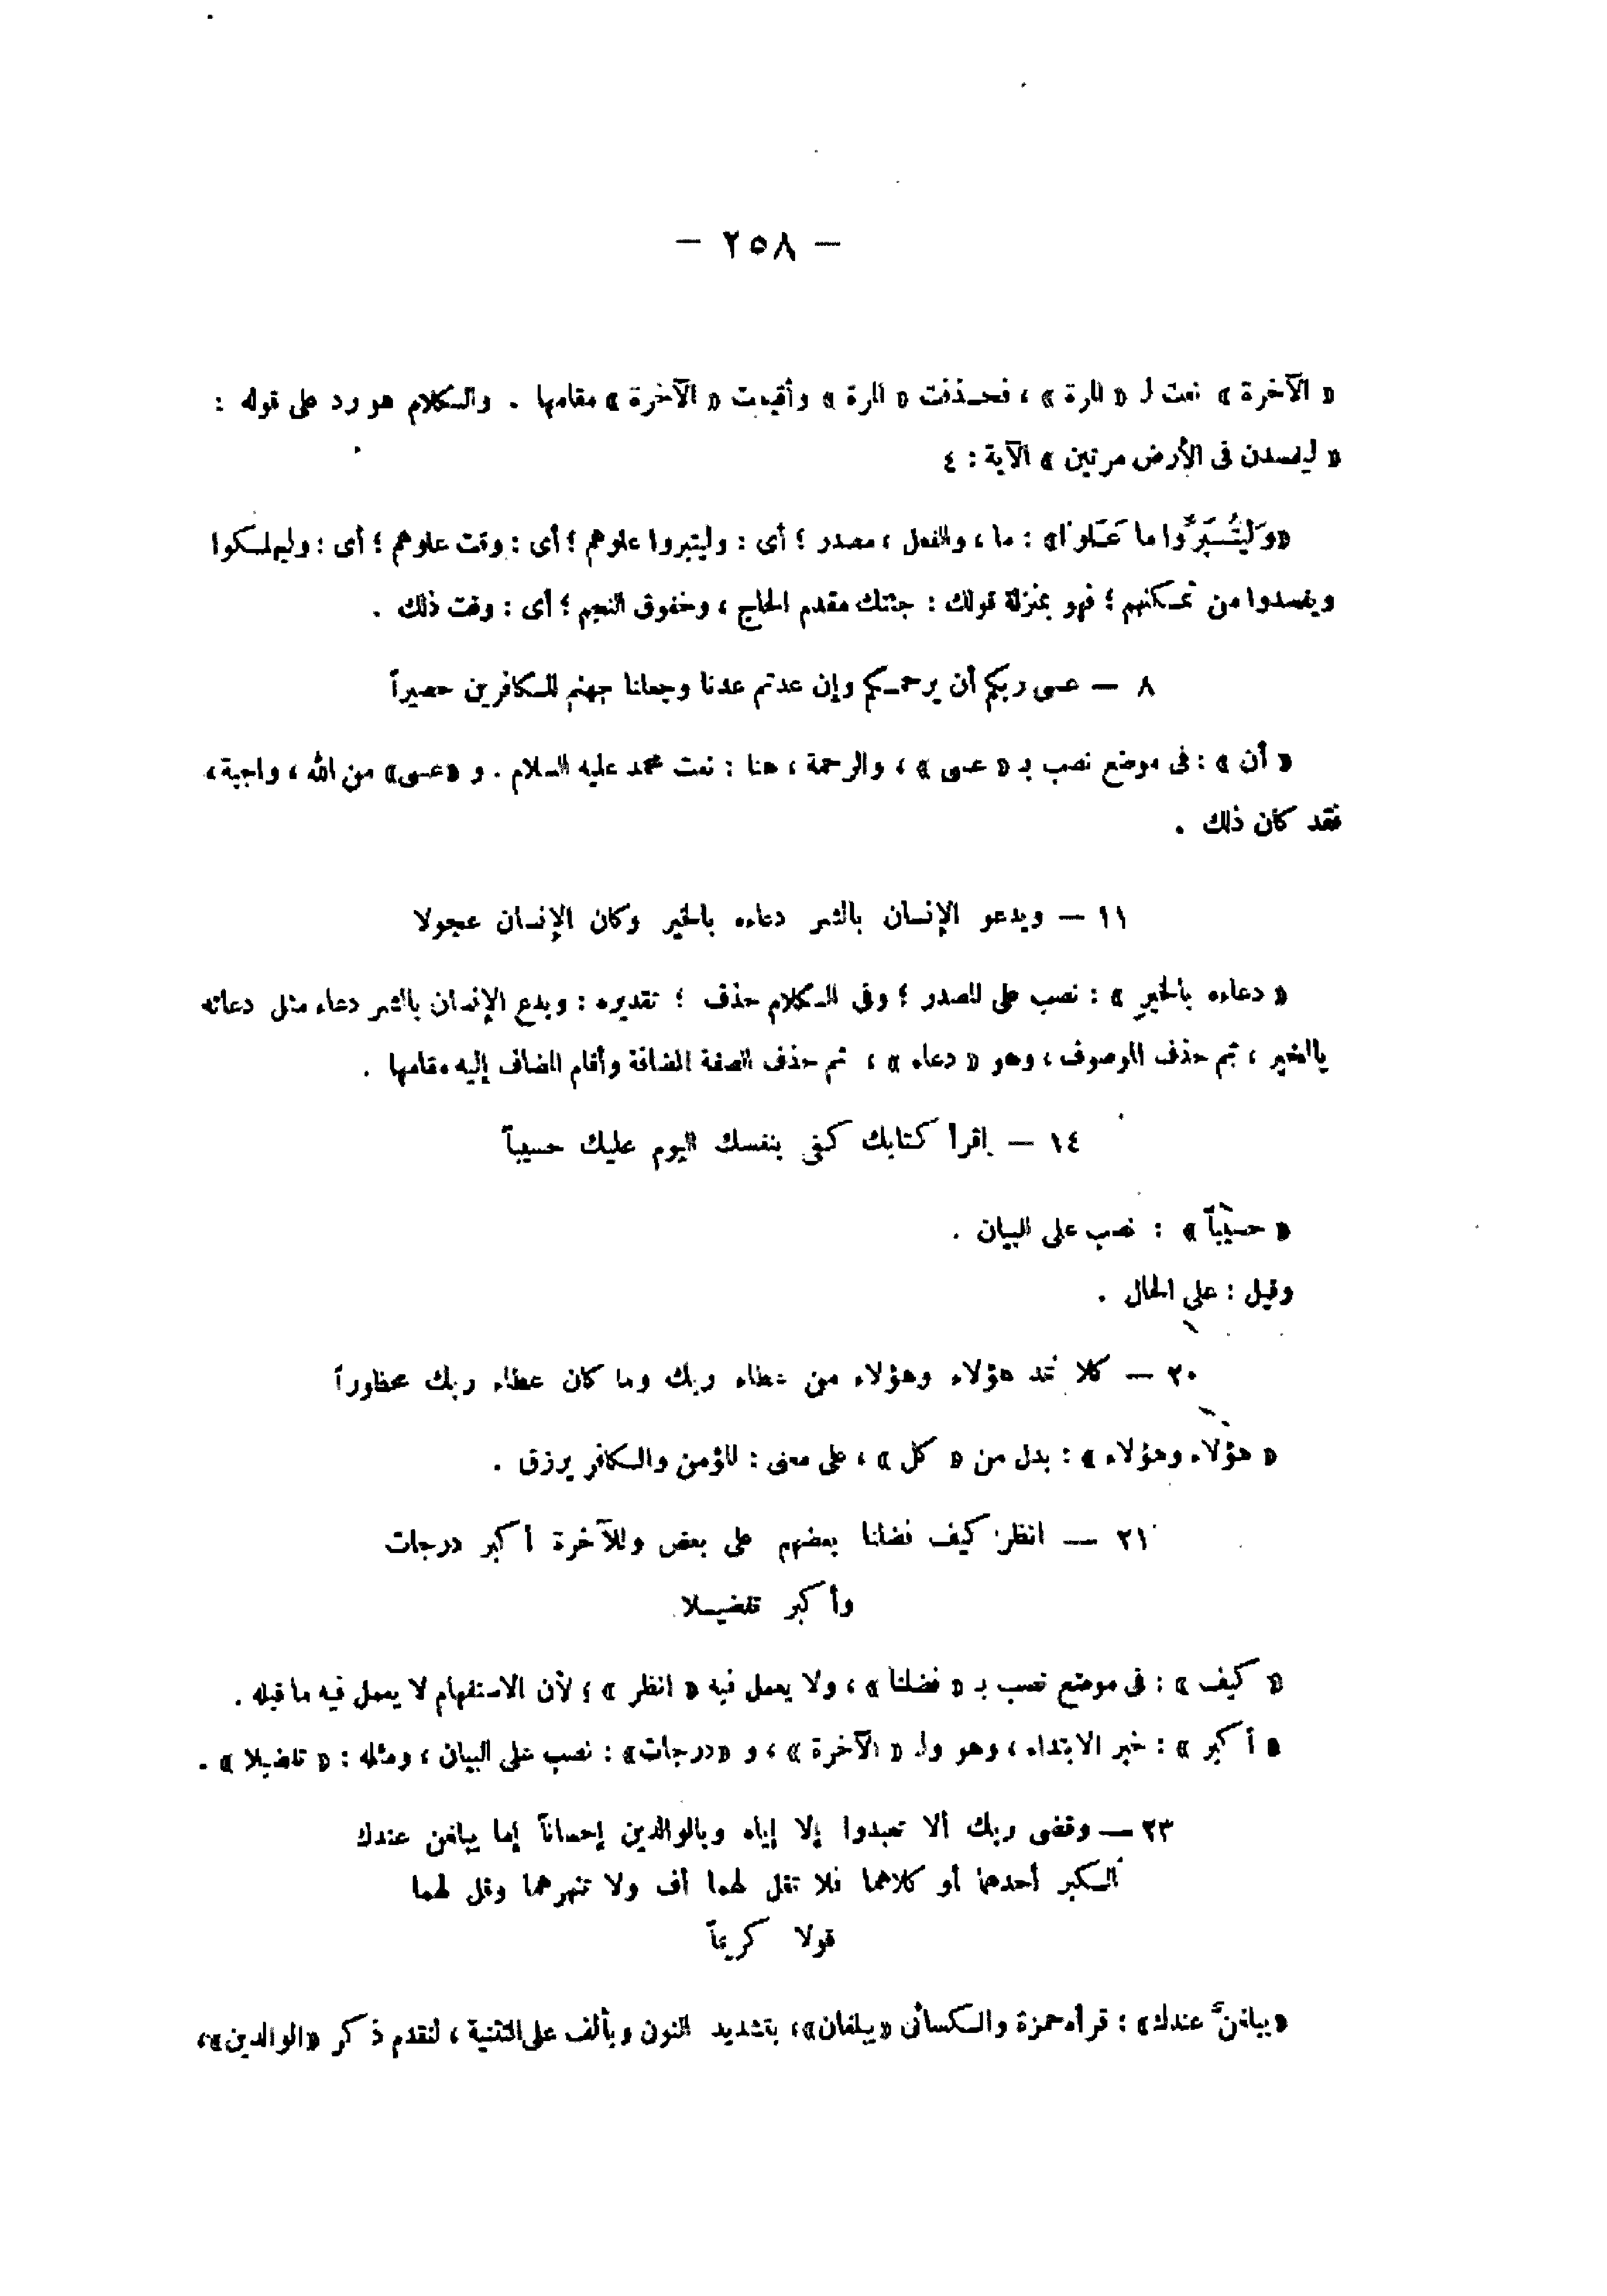 — ٢٥٨ —
« الآخرة » نعت لـ « المرة » ، فحـذفت « المرة » وأقيمت « الآخرة » مقامها . والكلام هو رد على قوله :
« ليفسدن فى الأرض مرتين » الآية : ٤
«وَلِيُتَبِّرُوا ما عَلَوْا» : ما ، والفعل ، مصدر ؛ أى : وليتبروا علوهم ؛ أى : وقت علوهم ؛ أى : وليهلكوا
ويفسدوا من تمكنهم ؛ فهو بمنزلة قولك : جئتك مقدم الحاج ، وخفوق النجم ؛ أى : وقت ذلك .
٨ — عسى ربكم أن يرحمـكم وإن عدتم عدنا وجعلنا جهنم للكافرين حصيراً
« أن » : فى موضع نصب بـ « عسى » ، والرحمة ، هنا : نعت محمد عليه السلام . و «عسى» من الله ، واجبة ،
فقد كان ذلك .
١١ — ويدعو الإنسان بالشر دعاءه بالخير وكان الإنسان عجولا
« دعاءه بالخيرِ » : نصب على المصدر ؛ وفى الكلام حذف ؛ تقديره : ويدع الإنسان بالشر دعاء مثل دعائه
بالخير ، ثم حذف الموصوف ، وهو « دعاء » ، ثم حذف الصفة المضافة وأقام المضاف إليه مقامها .
١٤ — إقرأ كتابك كفى بنفسك اليوم عليك حسيباً
« حسيباً » : نصب على البيان .
وقيل : على الحال .
٢٠ — كلا نمد هؤلاء وهؤلاء من عطاء ربك وما كان عطاء ربك محظوراً
« هؤلاء وهؤلاء » : بدل من « كل » ، على معنى : المؤمن والكافر يرزق .
٢١ — انظر كيف فضلنا بعضهم على بعض وللآخرة أكبر درجات
وأكبر تفضيـلا
« كيف » : فى موضع نصب بـ « فضلنا » ، ولا يعمل فيه « انظر » ؛ لأن الاستفهام لا يعمل فيه ما قبله .
« أكبر » : خبر الابتداء ، وهو ولـ « الآخرة » ، و «درجات» : نصب على البيان ، ومثله : « تفضيلا » .
٢٣ — وقضى ربك ألا تعبدوا إلا إياه وبالوالدين إحساناً إما يبلغن عندك
الكبر أحدهما أو كلاهما فلا تقل لهما أف ولا تنهرهما وقل لهما
قولا كريماً
«يبلغنَّ عندك» : قرأه حمزة والكسائى «يبلغان» ، بتشديد النون وبألف على التثنية ، لتقدم ذكر «الوالدين» ،